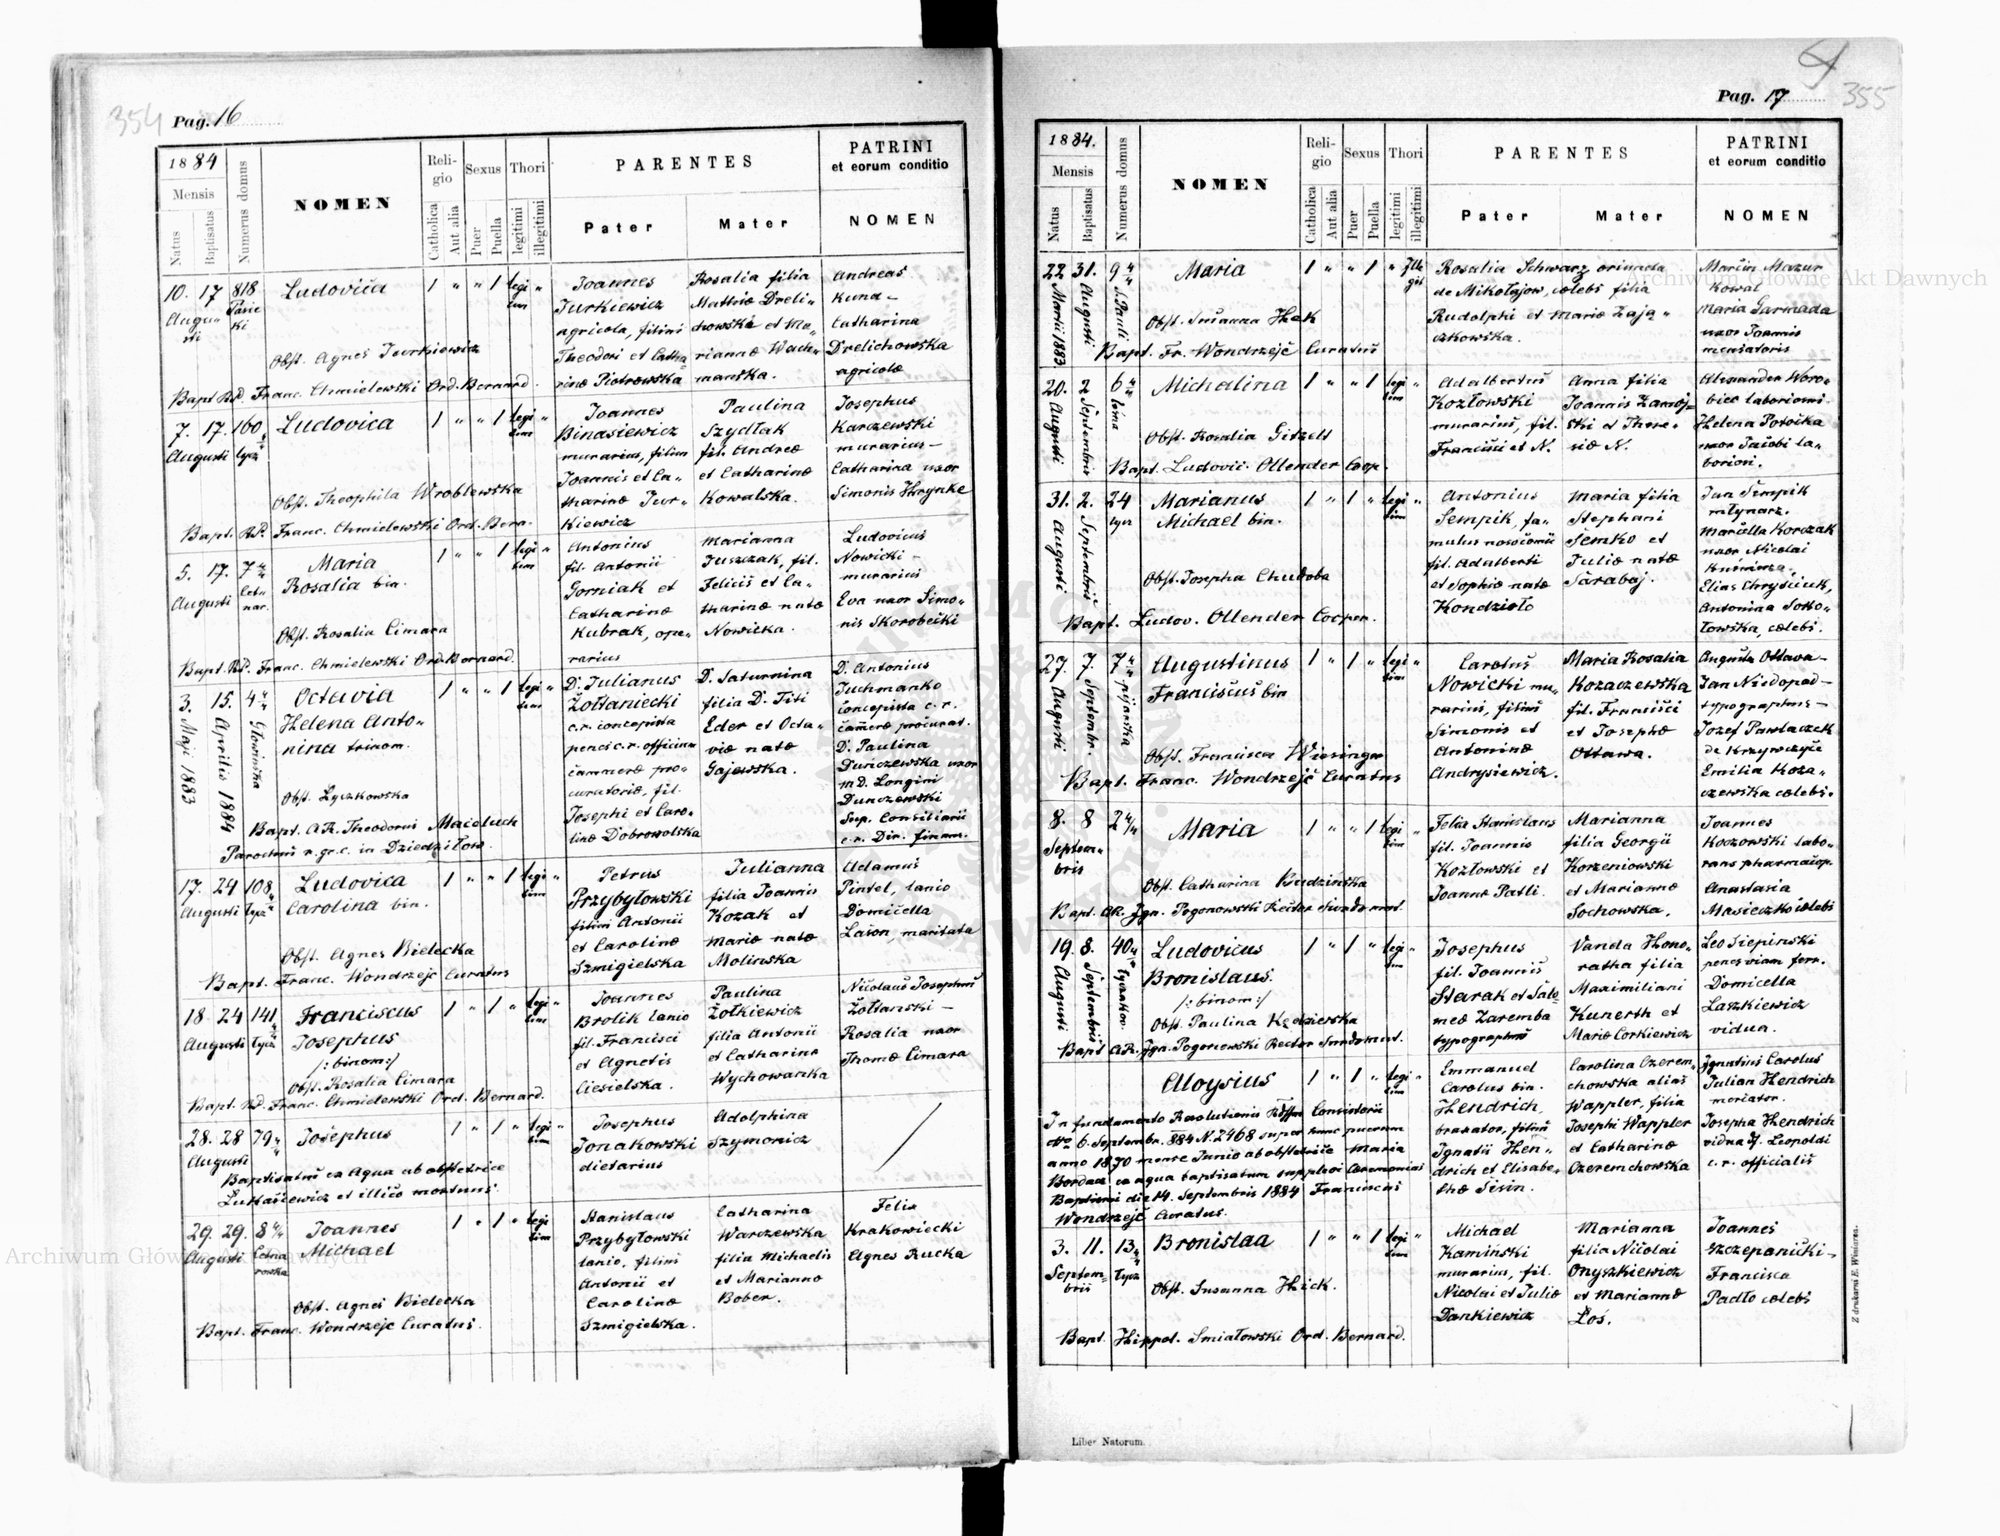 354
Pag. 16
1884
Mensis
Natus
Baptisatus
Numerus domus
NOMEN
Reli-
gio
Catholica
Aut alia
Sexus
Puer
Puella
Thori
legitimi
illegitimi
PARENTES
Pater
Mater
PATRINI
et eorum conditio
NOMEN
10. 17 818 Ludovica 1 " " 1 legi "
Augu-
sti
tim
Obst. Agnes Jurkiewicz
Bapt. RP. Franc. Chmielewski Ord. Bernard.
Joannes
Jurkiewicz
agricola, filius
Theodori et Catha
rinæ Piotrowska
Rosalia filia
Mathiæ Dreli-
chowski et Ma-
rianna Wach-
manska.
Andreas
Kund-
Catharina
Drelichowska
agricolæ
7. 17. 160 Ludovica 1 " " 1 legi "
Augusti Lycz tim
Obst. Theophila Wroblewska
Bapt. RP. Franc. Chmielewski Ord. Bern.
Joannes
Binasiewicz
murarius, filius
Joannis et Ca-
tharinæ Jur-
kiewicz
Paulina
Szydłak
fil. Andreæ
et Catharinæ
Kowalska.
Josephus
Karczewski
murarius-
Catharina uxor
Simonis Hrynke
5. 17. 7 Maria 1 " " 1 legi "
Augusti Rosalia bin. tim
Obst. Rosalia Cimara
Bapt. RP. Franc. Chmielewski Ord. Bernard.
Antonius
fil. Antonii
Gorniak et
Catharinæ
Kubrak, ope-
rarius
Marianna
Juszczak, fil.
Felicis et Ca-
tharinæ natæ
Nowicka.
Ludovicus
Nowicki-
murarius
Eva uxor Simo-
nis Skorobecki
3. 15. 4 Octavia 1 " " 1 legi "
Maji 1883
Aprilis 1884
Głowińska
Helena Anto-
nina trinom.
Obst. Łyczkowska
Bapt. AR. Theodorus Macieluch
Parochus r. gr. c. in Dziedziłow.
D. Julianus
Żołtaniecki
c.r. concepista
penes c.r. officium
cammeræ pro-
curatoriæ, fil.
Josephi et Caro-
linæ Dobrowolska
D. Saturnina
filia D. Titi
Eder et Octa-
viæ natæ
Gajewska.
D. Antonius
Juchmanko
Concepista c.r.
cameræ procurat.
D. Paulina
Dunczewska uxor
mD. Longini
Dunczewski
Sup. Consiliarii
c.r. Dir. finan.
17. 24 108 Ludovica 1 " " 1 legi "
Augusti Lycz Carolina bin. tim
Obst. Agnes Bielecka
Bapt. Franc. Wondrzejc Curatus
Petrus
Przybyłowski
filius Antonii
et Carolinæ
Szmigielska
Julianna
filia Joannis
Kozak et
Mariæ natæ
Molinska
Adamus
Pintel, lanio
Domicella
Lason, maritata
18 24 141 Franciscus 1 " 1 " legi "
Augusti Lycz Josephus tim
/: binom :/
Obst. Rosalia Cimara
Bapt. RP. Franc. Chmielewski Ord. Bernard.
Joannes
Brolik lanio
fil. Francisci
et Agnetis
Ciesielska.
Paulina
Żołkiewicz
filia Antonii
et Catharina
Wychowanka
Nicolaus Josephus
Żołtanski-
Rosalia uxor
Thomæ Cimara
28. 28 79 Josephus 1 " 1 " legi "
Augusti tim
Baptisatus ex Aqua ab obstetrice
Lukasiewicz et illico mortuus.
Josephus
Jonakowski
dietarius
Adolphina
Szymonicz
29. 29. 8 Joannes 1 " 1 " legi "
Augusti Michael tim
Obst. Agnes Bielecka
Bapt. Franc. Wondrzejc Curatus.
Stanislaus
Przybyłowski
lanio, filius
Antonii et
Carolinæ
Szmigielska.
Catharina
Warczewska
filia Michaelis
et Mariannæ
Bober.
Felix
Krakowiecki
Agnes Rucka
Pag. 17
355
1884.
Mensis
Natus
Baptisatus
Numerus domus
NOMEN
Reli-
gio
Catholica
Aut alia
Sexus
Puer
Puella
Thori
legitimi
illegitimi
PARENTES
Pater
Mater
PATRINI
et eorum conditio
NOMEN
22 31. 9 Maria 1 " " 1 " Ille
git
Martii 1883
Augusti
S. Pauli
Obst. Susanna Hek
Bapt. Fr. Wondrzejc Curatus
Rosalia Schwarz oriunda
de Mikołajow, cælebs filia
Rudolphi et Mariæ Zaja-
czkowska.
Marcin Mazur
Kowal
Maria Garmada
uxor Joannis
mensatoris
20. 2 6 Michalina 1 " " 1 legi "
Augusti
Septembris
tim
Obst. Rosalia Gitzelt
Bapt. Ludovic. Ollender Coop.
Adalbertus
Kozłowski
murarius, fil.
Francisci et N.
Anna filia
Joannis Zamoj-
ski et There-
siæ N.
Alexander Woro-
biec laborious.
Helena Potocka
uxor Jacobi la-
borioni.
31. 2. 24 Marianus 1 " 1 " legi "
Augusti
Septembris
Lycz
Michael bin.
tim
Obst. Josepha Chudoba
Bapt. Ludov. Ollender Cooper.
Antonius
Sempik, fa-
mulus nosocomii
fil. Adalberti
et Sophiæ natæ
Kondzioło
Maria filia
Stephani
Semko et
Juliæ natæ
Saraboj.
Jan Sempik
młynarz.
Marcella Korczak
uxor Nicolai
Kusnierza.
Elias Chrysciuk,
Antonina Soko-
łowska, cælebs.
27. 7. 7 Augustinus 1 " 1 " legi "
Augusti
Septembr.
pijarska
Franciscus bin
tim
Obst. Francisca Wiesinger
Bapt. Franc. Wondrzejc Curatus
Carolus
Nowicki mu-
rarius, filius
Simonis et
Antoninæ
Andrysiewicz.
Maria Rosalia
Kozaczewska
fil. Francisci
et Josephæ
Ottawa.
Augusta Ottawa-
Jan Niedopad-
typographus-
Jozef Pawlaczek
de Krzywczyce
Emilia Koza-
czewska cælebs.
8. 8 2 Maria 1 " " 1 legi "
Septem-
bris
tim
Obst. Catharina Budzinska
Bapt. AR. Ign. Pogonowski Rector
Felix Stanislaus
fil. Joannis
Kozłowski et
Joannæ Patli.
Marianna
filia Georgii
Korzeniowski
et Mariannæ
Sochowska.
Joannes
Koczowski labo-
rans pharmacop.
Anastasia
Masieczko cælebs
19. 8. 40 Ludovicus 1 " 1 " legi "
Augusti
Septembris
Łyczakov.
Bronislaus.
/: binom :/
tim
Obst. Paulina Kędzierska
Bapt AR. Ign. Pogonowski Rector
Josephus
fil. Joannis
Starak et Salo-
meæ Zaremba
typographus
Vanda Hono-
ratha filia
Maximiliani
Kunerth et
Mariæ Corkiewicz
Leo Siepinski
penes viam ferr.
Domicella
Laszkiewicz
vidua.
Aloysius 1 " 1 " legi "
tim
In fundamento Resolutionis Consistorii
dto 6. Septembr. 884 N. 2468 super hunc puerum
anno 1870 mense Junio ab obstetrice Maria
Bordacz ex aqua baptisatum supplevi Ceremonias
Baptismi die 14. Septembris 1884 Franciscus
Wondrzejc Curatus.
Emmanuel
Carolus bin.
Hendrich,
braxator, filius
Ignatii Hen-
drich et Elisabe-
thæ Sisin.
Carolina Czerem-
chowska alias
Wappler, filia
Josephi Wappler
et Catharinæ
Czeremchowska
Ignatius Carolus
Julian Hendrich
moriator.
Josepha Hendrich
vidua p. Leopoldi
c.r. officialis
3. 11. 13 Bronislaa 1 " " 1 legi "
Septem-
bris
Lycz
tim
Obst. Susanna Hick.
Bapt. Hippol. Smiałowski Ord. Bernard.
Michael
Kamiński
murarius, fil.
Nicolai et Juliæ
Dankiewicz
Marianna
filia Nicolai
Onyszkiewicz
et Mariannæ
Łoś.
Joannes
Szczepanicki-
Francisca
Padło cælebs
Z drukarni E. Winiarza.
Liber Natorum.
Archiwum Główne Akt Dawnych
Archiwum Główne Akt Dawnych